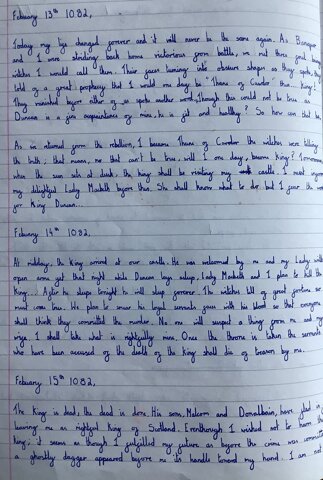 February 13th 1082,
Today my life changed forever and it will never be the same again. As Banquo
and I were strolling back home victorious from battle, we met three foul beings
witches I would call them. Their faces turning into obscure shapes as they spoke, they
told of a great prophecy that I would one day be "Thane of Cawdor" then... King!
They vanished before either of us spoke another word, though this could not be true as
Duncan is a fine acquaintance of mine, he is fit and healthy? So how can that be
As we returned from the rebellion, I became Thane of Cawdor the witches were telling
the truth; that means, no that can't be true, will I one day, become King? Tomorrow
when the sun sets at dusk, the king shall be visiting my castle. I must inform
my delightful Lady Macbeth before this. She shall know what to do but I fear the worst
for King Duncan...
February 14th 1082,
At midday, the King arrived at our castle. He was welcomed by me and my Lady with
open arms, yet that night while Duncan lays asleep, Lady Macbeth and I plan to kill the
King... After he sleeps tonight he will sleep forever. The witches tell of great fortune so
must come true. We plan to smear his loyal servants faces with his blood so that everyone
shall think they committed the murder. No one will suspect a thing from me and my
wife. I shall take what is rightfully mine. Once the throne is taken the servants
who have been accused of the death of the King shall die of treason by me.
February 15th 1082,
The King is dead, the deed is done. His sons, Malcom and Donalbain, have fled in
leaving me as rightful king of Scotland. Eventhough I wished not to harm the
King, it seems as though I fulfilled my future as before the crime was committed
a ghostly dagger appeared before me its handle toward my hand. I am not